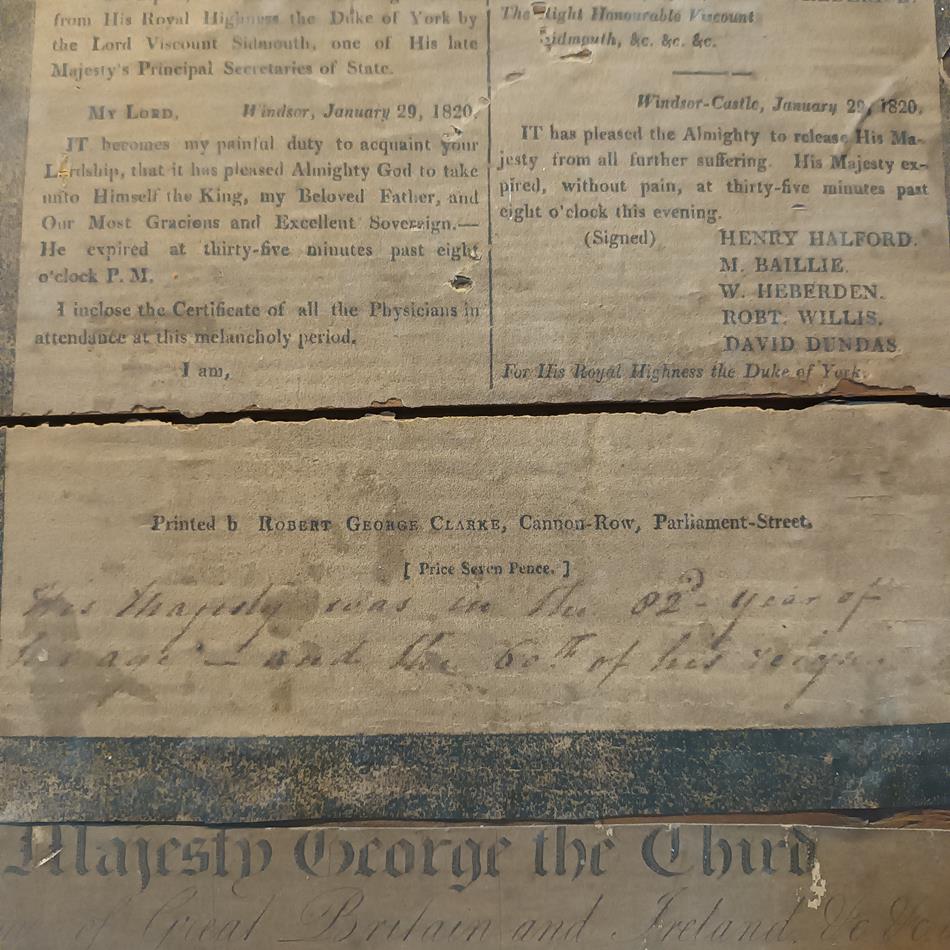 from His Royal Highness the Duke of York by
the Lord Viscount Sidmouth, one of His late
Majesty's Principal Secretaries of State.
MY LORD, Windsor, January 29, 1820.
IT becomes my painful duty to acquaint your
Lordship, that it has pleased Almighty God to take
unto Himself the King, my Beloved Father, and
Our Most Gracious and Excellent Sovereign.—
He expired at thirty-five minutes past eight
o'clock P. M.
I inclose the Certificate of all the Physicians in
attendance at this melancholy period.
I am,
The Right Honourable Viscount
Sidmouth, &c. &c. &c.
Windsor-Castle, January 29, 1820.
IT has pleased the Almighty to release His Ma-
jesty from all further suffering. His Majesty ex-
pired, without pain, at thirty-five minutes past
eight o'clock this evening.
(Signed) HENRY HALFORD.
M. BAILLIE.
W. HEBERDEN.
ROBT. WILLIS.
DAVID DUNDAS.
For His Royal Highness the Duke of York.
Printed b ROBERT GEORGE CLARKE, Cannon-Row, Parliament-Street.
[ Price Seven Pence. ]
His Majesty was in the 82d year of
his age — and the 60th of his reign
Majesty George the Third
of Great Britain and Ireland &c &c